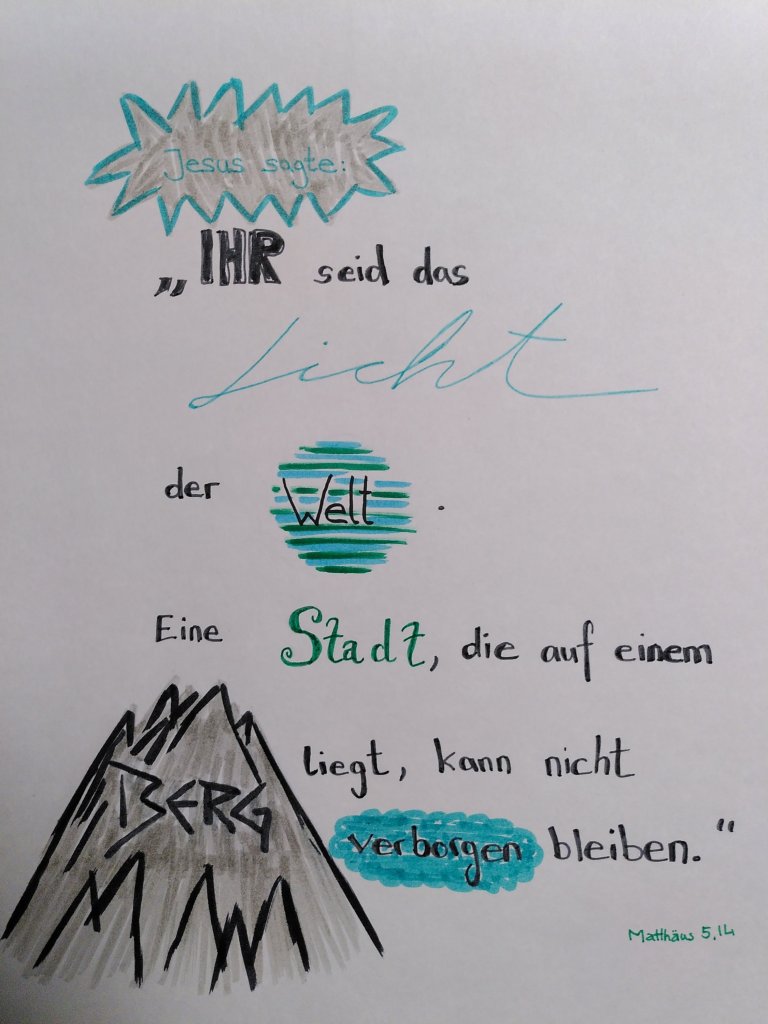 Jesus sagte:
„IHR seid das
Licht
der Welt.
Eine Stadt, die auf einem
BERG liegt, kann nicht
verborgen bleiben.“
Matthäus 5,14